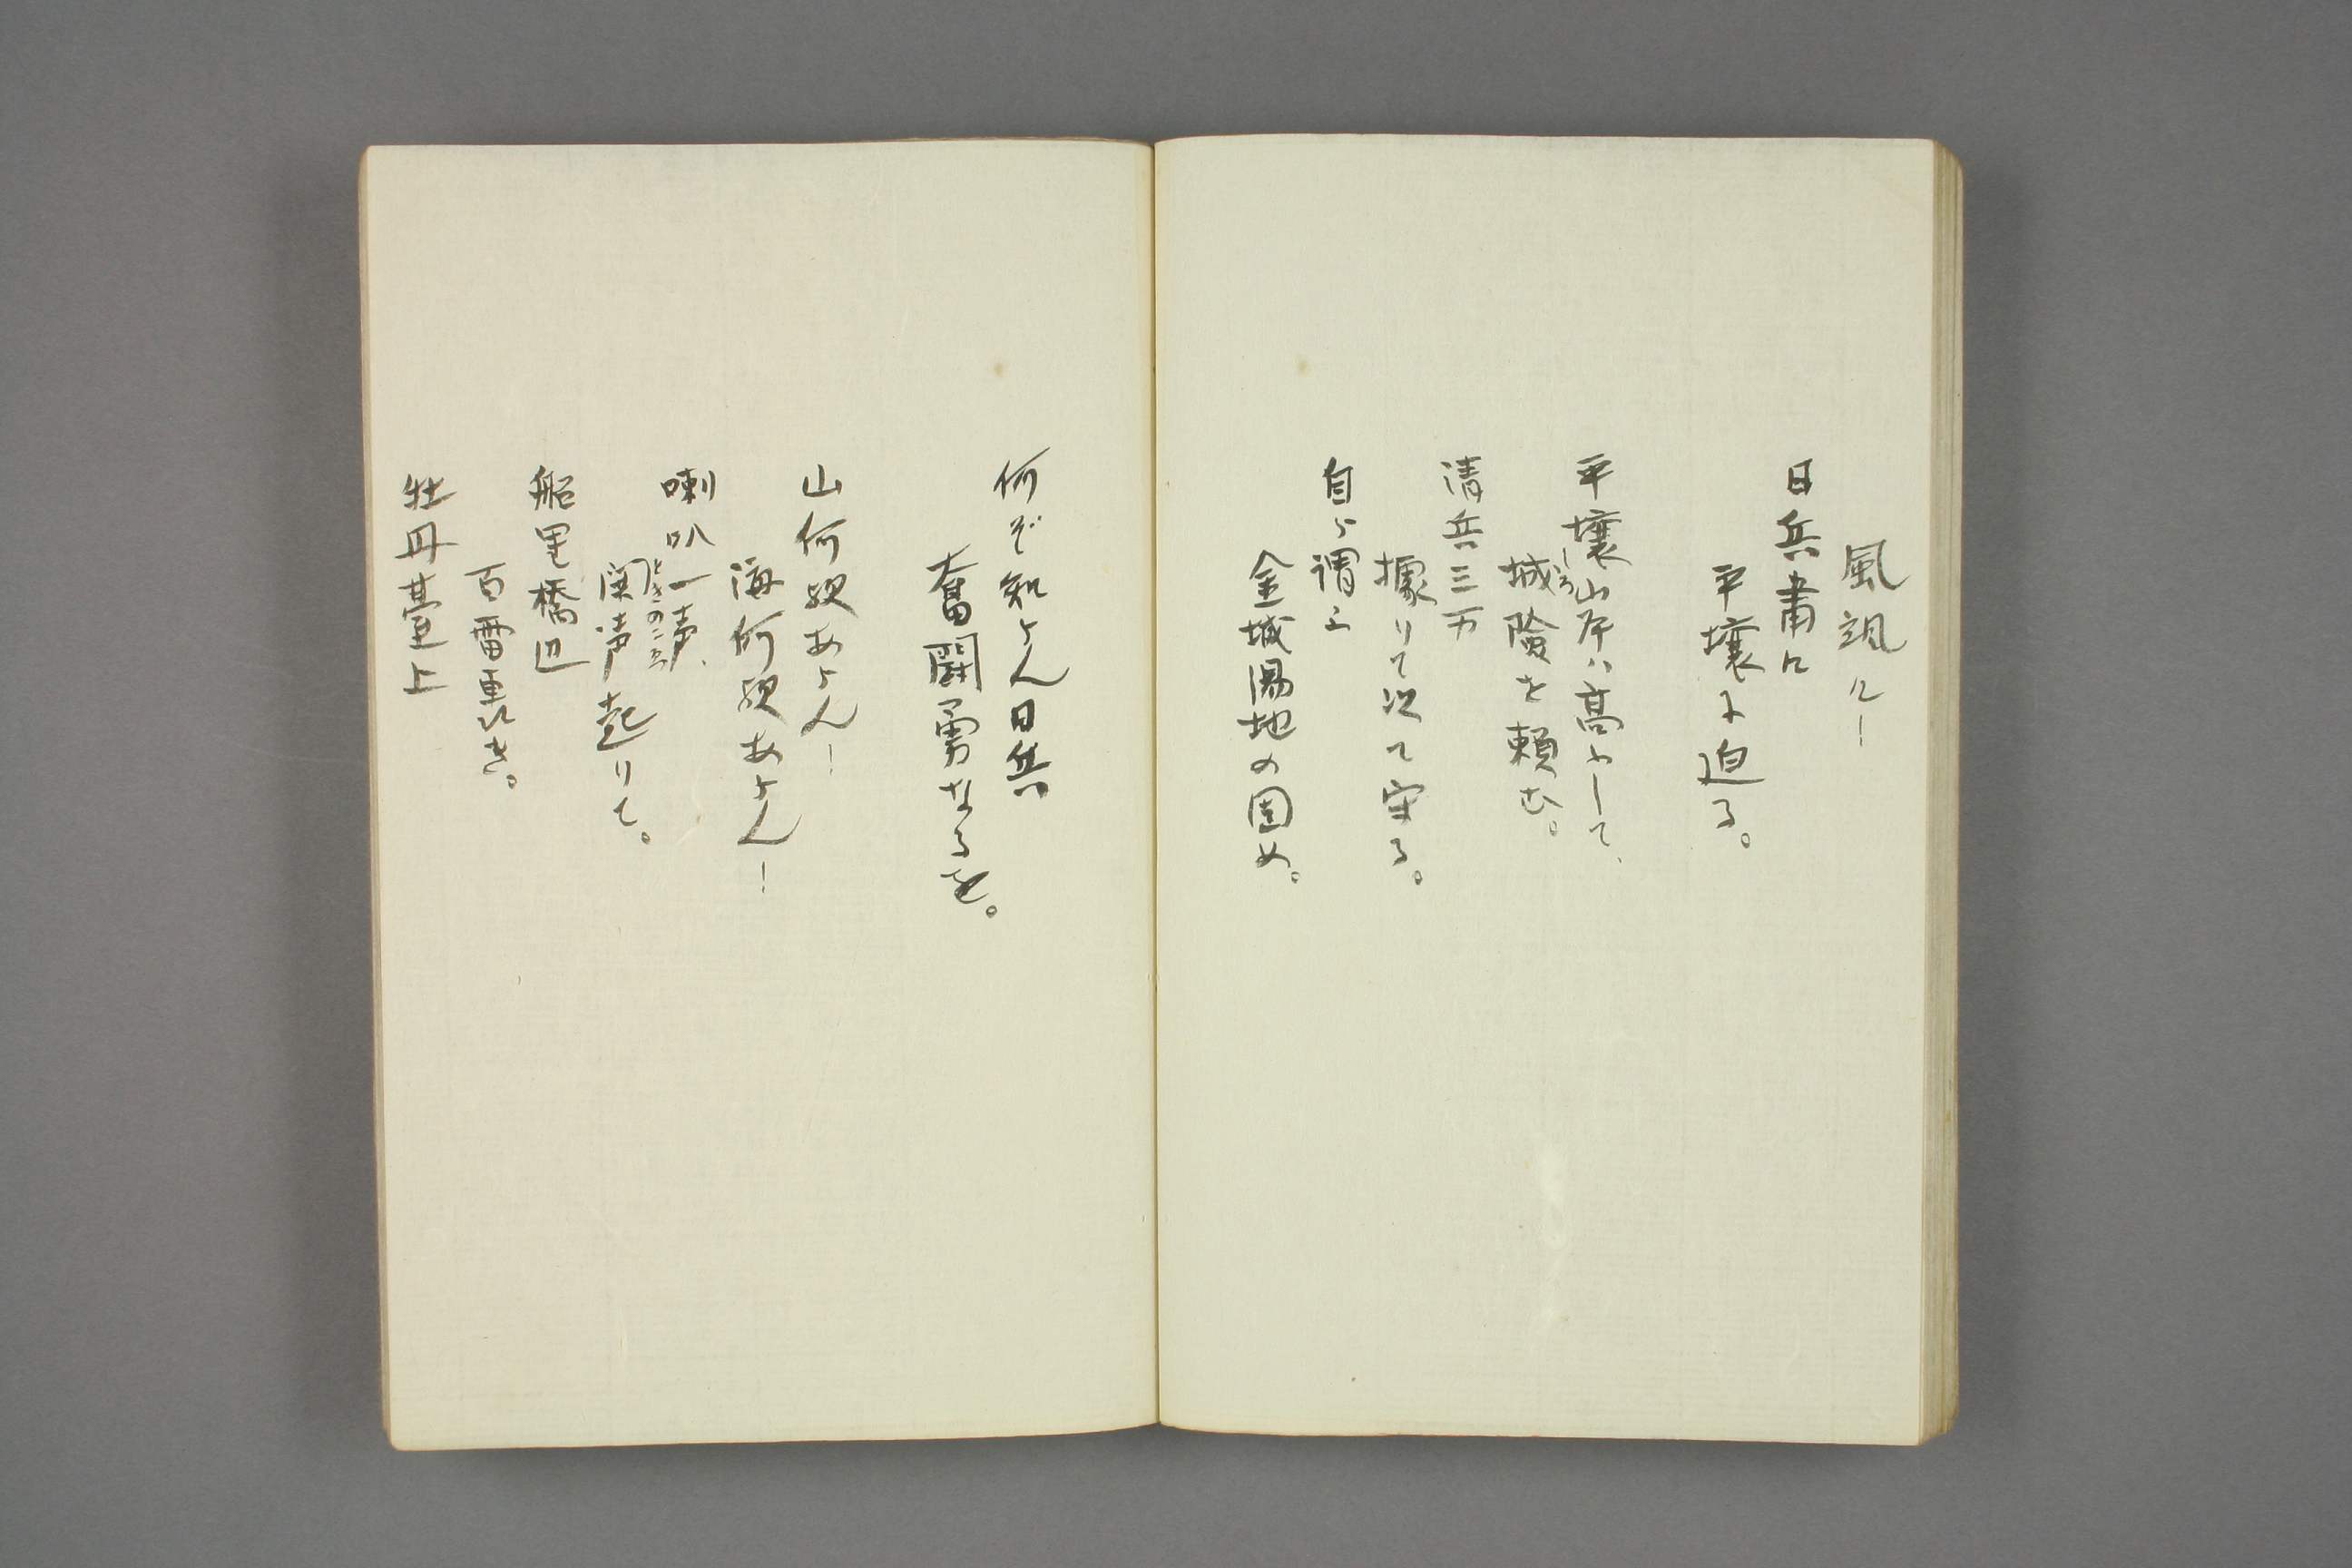 風颯々！
日兵粛々
平壌に迫る。
平壌山岸は高うして、
城険を頼む。
しろ
清兵三万
據りて以て守る。
自ら謂ふ
金城湯地の固め。
何ぞ知らん日兵
奮闘勇なるを。
山何かあらん！
海何かあらん！
喇叭一声、
ときのこゑ
関声起りて。
船里橋辺
百雷重く
牡丹臺上